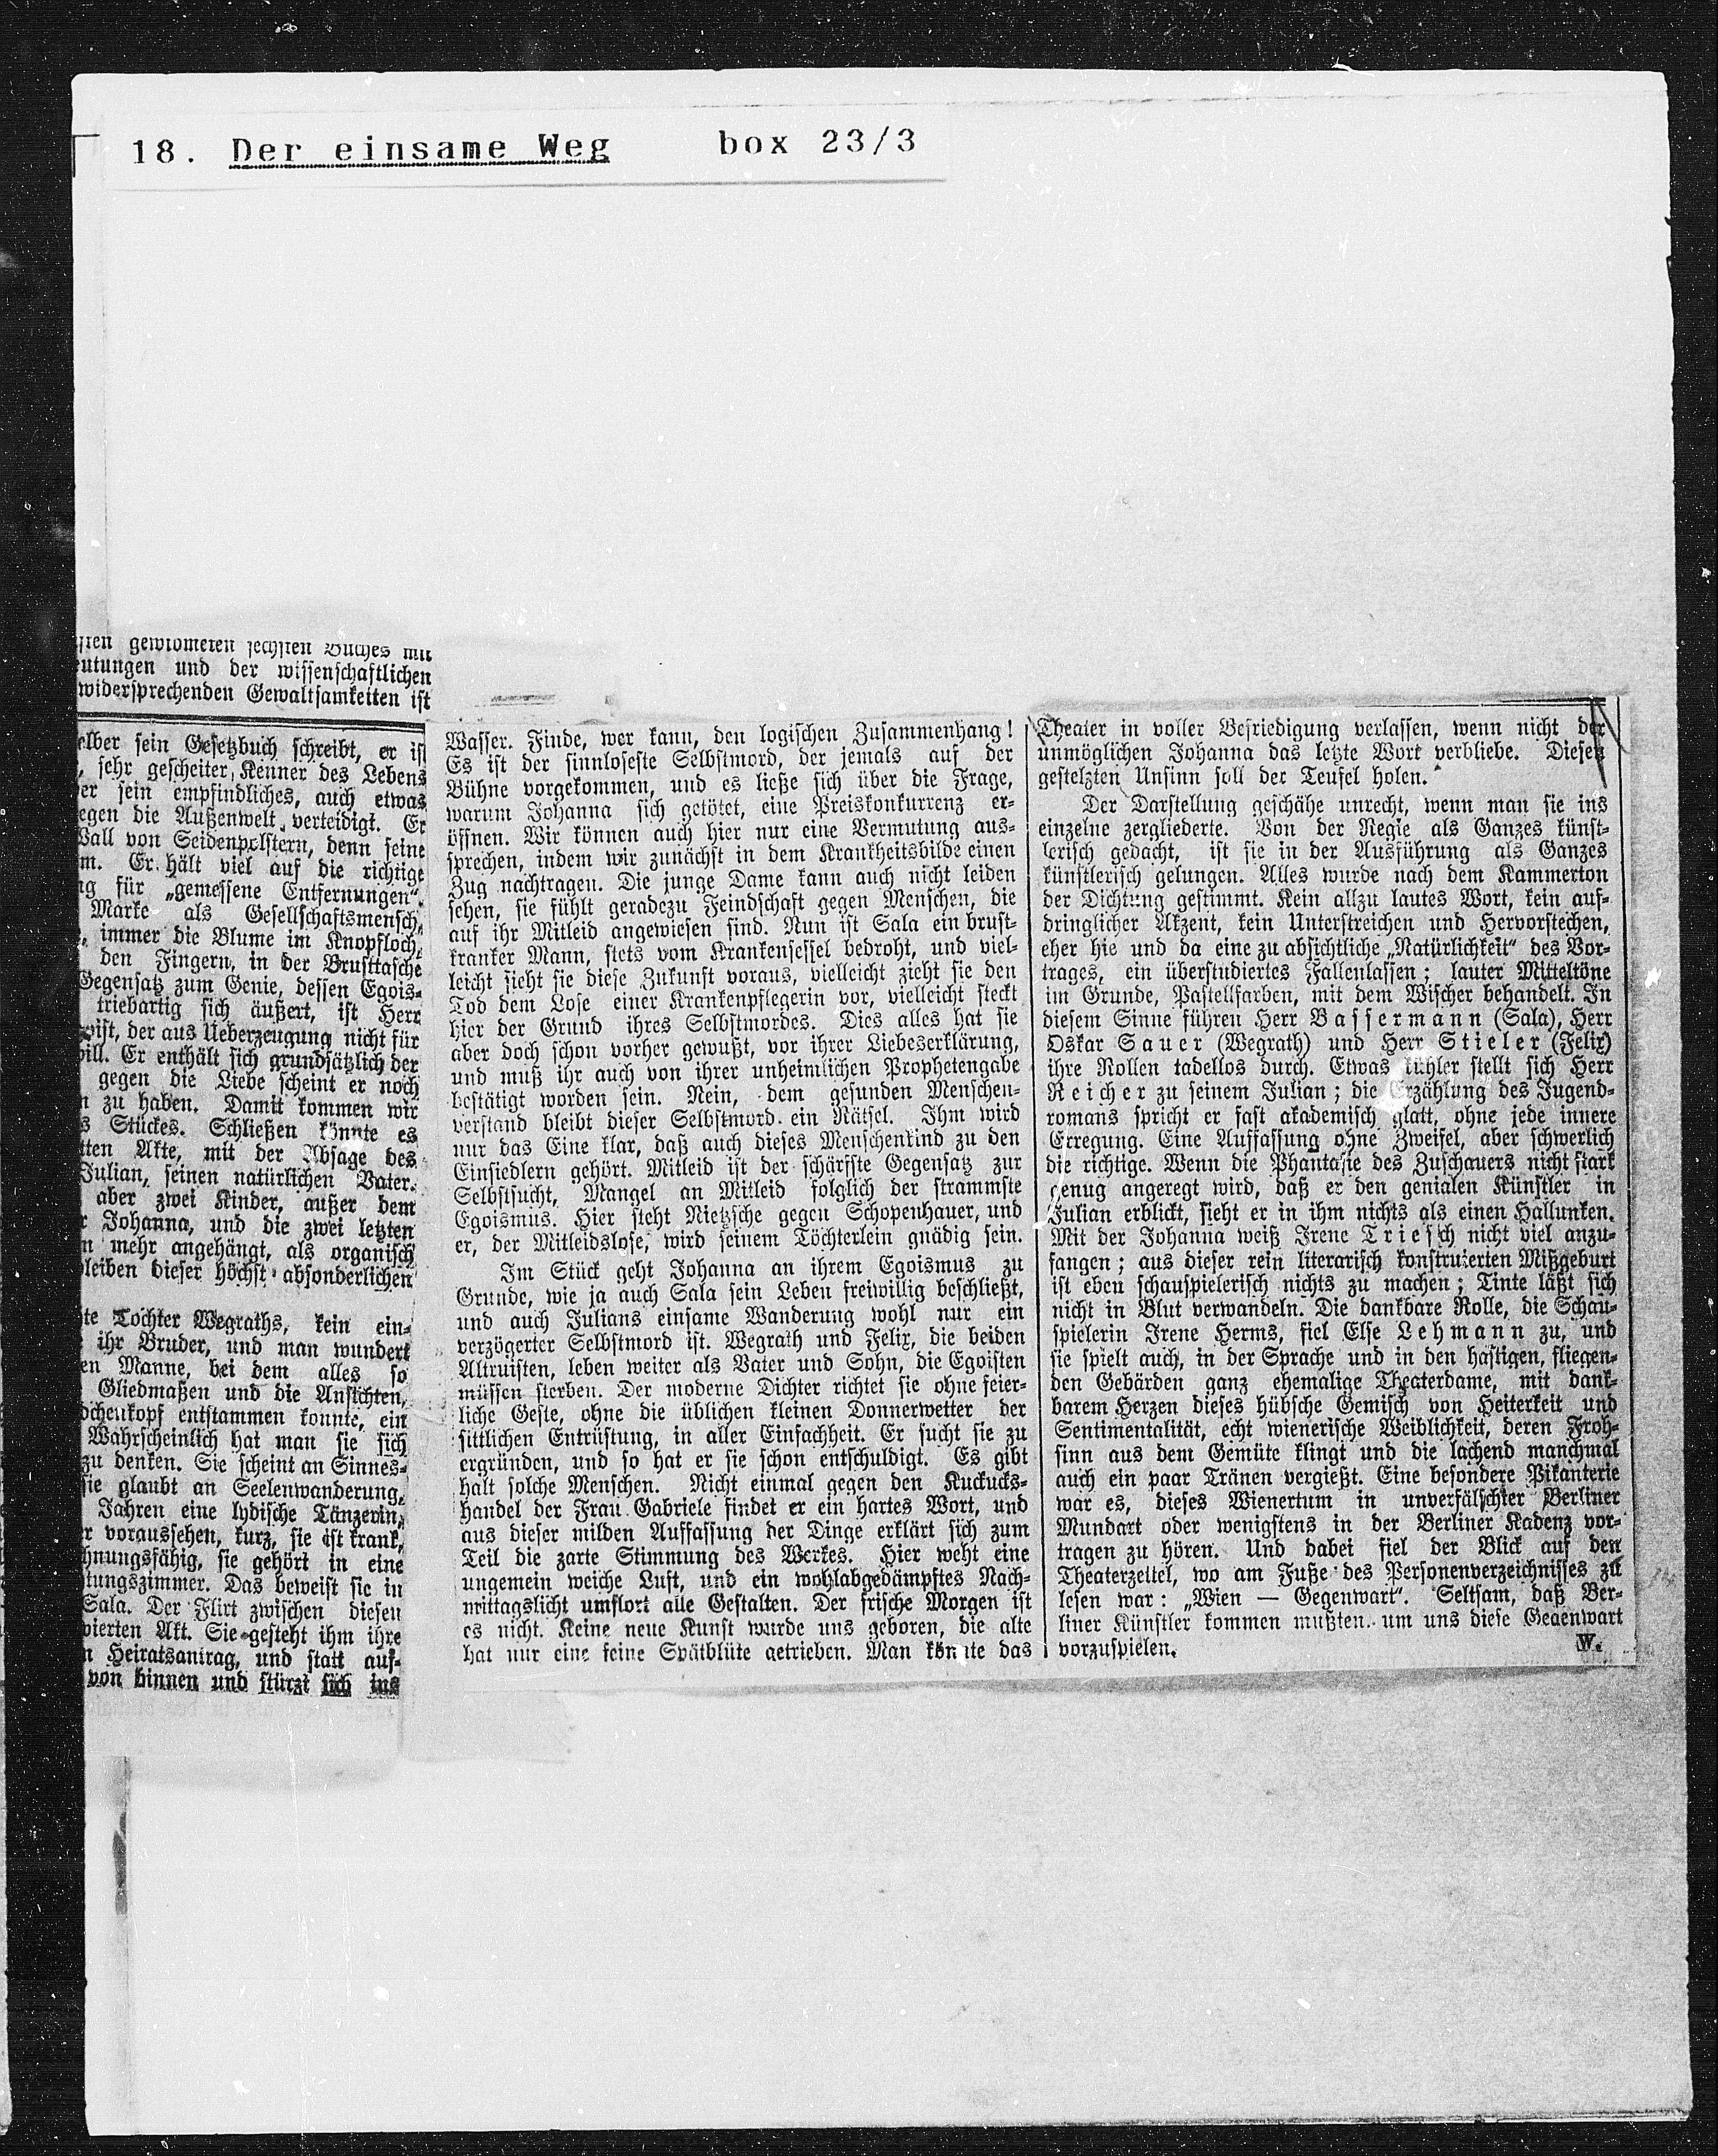 18. Der einsame Weg box 23/3
gewidmeten sechsten Buches mit
und der wissenschaftlichen
widersprechenden Gewaltsamkeiten ist
elber sein Gesetzbuch schreibt, er ist
, sehr gescheiter Kenner des Lebens
er sein empfindliches, auch etwas
egen die Außenwelt verteidigt. Er
Wall von Seidenpolstern, denn seine
m. Er hält viel auf die richtige
ng für „gemessene Entfernungen".
Marke als Gesellschaftsmensch,
immer die Blume im Knopfloch,
den Fingern, in der Brusttasche
Gegensatz zum Genie, dessen Egois-
triebartig sich äußert, ist Herr
oist, der aus Ueberzeugung nicht für
will. Er enthält sich grundsätzlich der
gegen die Liebe scheint er noch
n zu haben. Damit kommen wir
s Stückes. Schließen könnte es
tten Akte, mit der Absage des
Julian, seinen natürlichen Vater.
aber zwei Kinder, außer dem
r Johanna, und die zwei letzten
n mehr angehängt, als organisch
bleiben dieser höchst absonderlichen
te Tochter Wegraths, kein ein-
ihr Bruder, und man wundert
en Manne, bei dem alles so
Gliedmaßen und die Ansichten,
ochenkopf entstammen konnte, ein
Wahrscheinlich hat man sie sich
zu denken. Sie scheint an Sinnes-
sie glaubt an Seelenwanderung,
Jahren eine lydische Tänzerin,
r voraussehen, kurz, sie ist krank,
hnungsfähig, sie gehört in eine
tungszimmer. Das beweist sie in
Sala. Der Flirt zwischen diesen
vierten Akt. Sie gesteht ihm ihre
n Heiratsantrag, und statt auf-
von hinnen und stürzt sich ins
Wasser. Finde, wer kann, den logischen Zusammenhang!
Es ist der sinnloseste Selbstmord, der jemals auf der
Bühne vorgekommen, und es ließe sich über die Frage,
warum Johanna sich getötet, eine Preiskonkurrenz er-
öffnen. Wir können auch hier nur eine Vermutung aus-
sprechen, indem wir zunächst in dem Krankheitsbilde einen
Zug nachtragen. Die junge Dame kann auch nicht leiden
sehen, sie fühlt geradezu Feindschaft gegen Menschen, die
auf ihr Mitleid angewiesen sind. Nun ist Sala ein brust-
kranker Mann, stets vom Krankensessel bedroht, und viel-
leicht sieht sie diese Zukunft voraus, vielleicht zieht sie den
Tod dem Lose einer Krankenpflegerin vor, vielleicht steckt
hier der Grund ihres Selbstmordes. Dies alles hat sie
aber doch schon vorher gewußt, vor ihrer Liebeserklärung,
und muß ihr auch von ihrer unheimlichen Prophetengabe
bestätigt worden sein. Nein, dem gesunden Menschen-
verstand bleibt dieser Selbstmord ein Rätsel. Ihm wird
nur das Eine klar, daß auch dieses Menschenkind zu den
Einsiedlern gehört. Mitleid ist der schärfste Gegensatz zur
Selbstsucht, Mangel an Mitleid folglich der strammste
Egoismus. Hier steht Nietzsche gegen Schopenhauer, und
er, der Mitleidslose, wird seinem Töchterlein gnädig sein.
Im Stück geht Johanna an ihrem Egoismus zu
Grunde, wie ja auch Sala sein Leben freiwillig beschließt,
und auch Julians einsame Wanderung wohl nur ein
verzögerter Selbstmord ist. Wegrath und Felix, die beiden
Altruisten, leben weiter als Vater und Sohn, die Egoisten
müssen sterben. Der moderne Dichter richtet sie ohne feier-
liche Geste, ohne die üblichen kleinen Donnerwetter der
sittlichen Entrüstung, in aller Einfachheit. Er sucht sie zu
ergründen, und so hat er sie schon entschuldigt. Es gibt
halt solche Menschen. Nicht einmal gegen den Kuckucks-
handel der Frau Gabriele findet er ein hartes Wort, und
aus dieser milden Auffassung der Dinge erklärt sich zum
Teil die zarte Stimmung des Werkes. Hier weht eine
ungemein weiche Luft, und ein wohlabgedämpftes Nach-
mittagslicht umflort alle Gestalten. Der frische Morgen ist
es nicht. Keine neue Kunst wurde uns geboren, die alte
hat nur eine feine Spätblüte getrieben. Man könnte das
Theater in voller Befriedigung verlassen, wenn nicht der
unmöglichen Johanna das letzte Wort verbliebe. Diesen
gestelzten Unsinn soll der Teufel holen.
Der Darstellung geschähe unrecht, wenn man sie ins
einzelne zergliederte. Von der Regie als Ganzes künst-
lerisch gedacht, ist sie in der Ausführung als Ganzes
künstlerisch gelungen. Alles wurde nach dem Kammerton
der Dichtung gestimmt. Kein allzu lautes Wort, kein auf-
dringlicher Akzent, kein Unterstreichen und Hervorstechen,
eher hie und da eine zu absichtliche „Natürlichkeit" des Vor-
trages, ein überstudiertes Fallenlassen; lauter Mitteltöne
im Grunde, Pastellfarben, mit dem Wischer behandelt. In
diesem Sinne führen Herr Bassermann (Sala), Herr
Oskar Sauer (Wegrath) und Herr Stieler (Felix)
ihre Rollen tadellos durch. Etwas kühler stellt sich Herr
Reicher zu seinem Julian; die Erzählung des Jugend-
romans spricht er fast akademisch glatt, ohne jede innere
Erregung. Eine Auffassung ohne Zweifel, aber schwerlich
die richtige. Wenn die Phantasie des Zuschauers nicht stark
genug angeregt wird, daß er den genialen Künstler in
Julian erblickt, sieht er in ihm nichts als einen Hallunken.
Mit der Johanna weiß Irene Triesch nicht viel anzu-
fangen; aus dieser rein literarisch konstruierten Mißgeburt
ist eben schauspielerisch nichts zu machen; Tinte läßt sich
nicht in Blut verwandeln. Die dankbare Rolle, die Schau-
spielerin Irene Herms, fiel Else Lehmann zu, und
sie spielt auch, in der Sprache und in den hastigen, fliegen-
den Gebärden ganz ehemalige Theaterdame, mit dank-
barem Herzen dieses hübsche Gemisch von Heiterkeit und
Sentimentalität, echt wienerische Weiblichkeit, deren Froh-
sinn aus dem Gemüte klingt und die lachend manchmal
auch ein paar Tränen vergießt. Eine besondere Pikanterie
war es, dieses Wienertum in unverfälschter Berliner
Mundart oder wenigstens in der Berliner Kadenz vor-
tragen zu hören. Und dabei fiel der Blick auf den
Theaterzettel, wo am Fuße des Personenverzeichnisses zu
lesen war: „Wien — Gegenwart". Seltsam, daß Ber-
liner Künstler kommen mußten, um uns diese Gegenwart
vorzuspielen.
W.